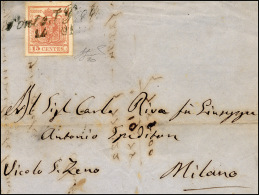 15 CENTES.
All Sigr Carlo Riva fu Giuseppe
Antonio Speditor
Vicolo S. Zeno Milano